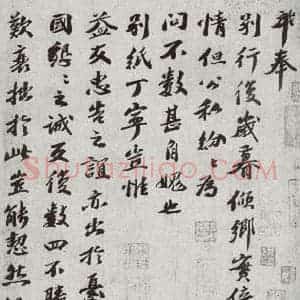 奉
別行後歲暮傾鄉實倍
情但公私紛紛為
問不數甚自媿也
別紙丁寧豈惟
益友忠告之誼亦出於憂
國惓惓之誠反後數四不勝
歎襄挹於此豈能恝然